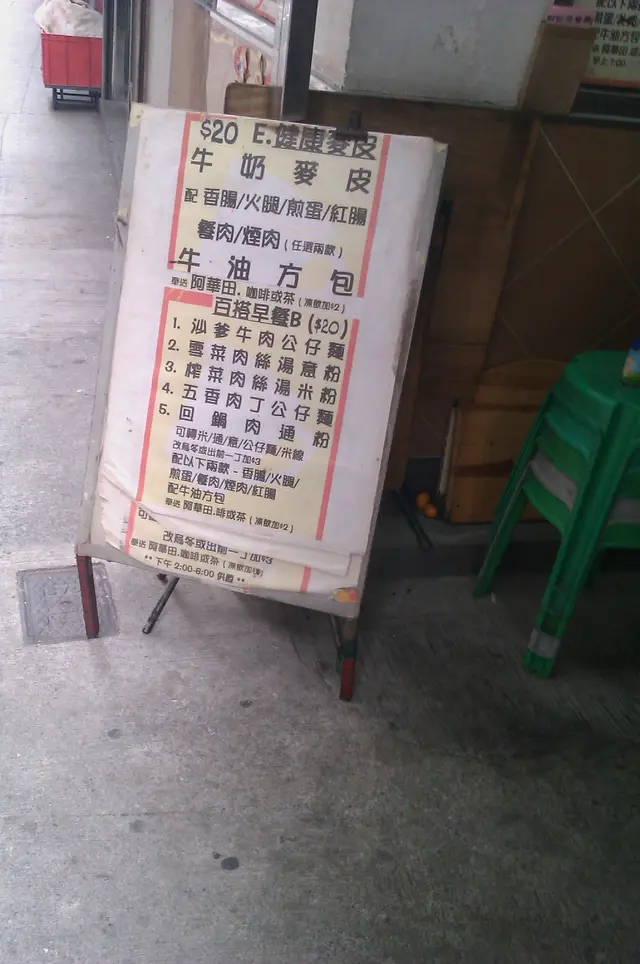 $20 E.健康麥皮
牛奶麥皮
配 香腸/火腿/煎蛋/紅腸
餐肉/煙肉 (任選兩款)
牛油方包
奉送 阿華田.咖啡或茶 (凍飲加$2)
百搭早餐B ($20)
1. 沙爹牛肉公仔麵
2. 雪菜肉絲湯意粉
3. 榨菜肉絲湯米粉
4. 五香肉丁公仔麵
5. 回鍋肉通粉
可轉米/通/意/公仔麵/米線
改烏冬或出前一丁加$3
配以下兩款-香腸/火腿/
煎蛋/餐肉/煙肉/紅腸
配牛油方包
奉送 阿華田.啡或茶 (凍飲加$2)
改烏冬或出前一丁加$3
奉送 阿華田.咖啡或茶 (凍飲加$2)
**下午 2:00-6:00 供應**
配以下
煎蛋/
配牛油方包
奉送 阿華田
早上